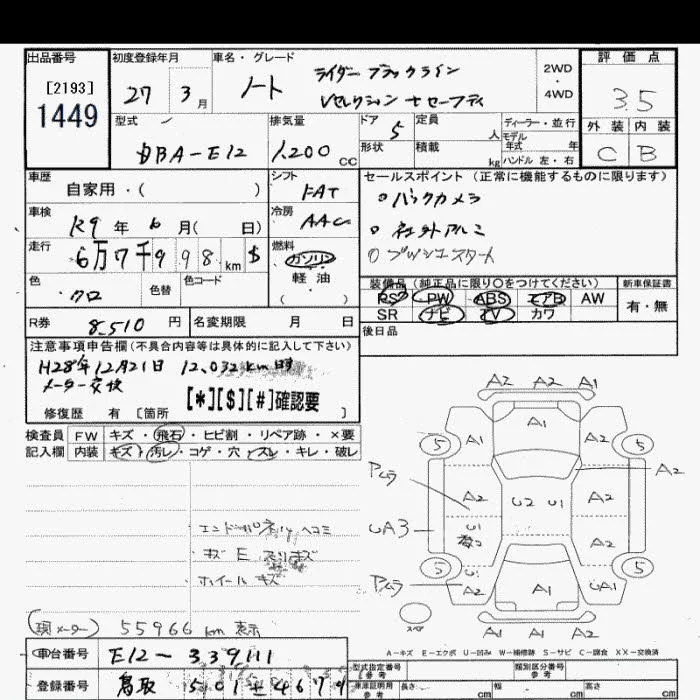 出品番号
[2193]
1449
初度登録年月
27 3月
車名・グレード
ノート ライダー ブラックライン
Vセレクション+セーフティ
2WD
・
4WD
評価点
3.5
外装 内装
C B
型式
DBA-E12
排気量
1,200 CC
ドア
5
形状
定員 人
積載 kg
ディーラー・並行
モデル
年式 年
ハンドル 左・右
車歴
自家用・( )
シフト
FAT
車検
R9年6月( 日)
冷房
AAC
走行
6万7千998km $
燃料
ガソリン
軽油
( )
色
クロ
色替
色コード
R券
8,510円
名変期限 月 日
セールスポイント(正常に機能するものに限ります)
○バックカメラ
○社外アルミ
○プッシュスタート
装備品(純正品に限り〇をつけてください)
PS PW ABS エアB AW
SR ナビ TV カワ
新車保証書
有・無
後日品
注意事項申告欄(不具合内容等は具体的に記入して下さい)
H28年12月21日 12,032km時
メーター交換
[*][$][#]確認要
修復歴 有 [箇所 ]
検査員
記入欄
FW キズ・飛石・ヒビ割・リペア跡・×要
内装 キズ・汚レ・コゲ・穴・スレ・キレ・破レ
エンドパネル ヘコミ
キズ E スリキズ
ホイールキズ
(現メーター) 55966 km 表示
車台番号
E12-339111
登録番号
鳥取 501
A2 A2 A1
A1
5 A1 A1 5
A2
A2 U2 U1 A2
UA3
U1
A2
5 U1 5
A2 A1 UA1
スペア
A1 A1 A2
A-キズ E-エクボ U-凹み W-補修跡 S-サビ C-腐食 XX-交換済
型式指定番号
参考
類別区分番号
参考
車庫証明用
参考
長さ cm
幅 cm
高さ cm